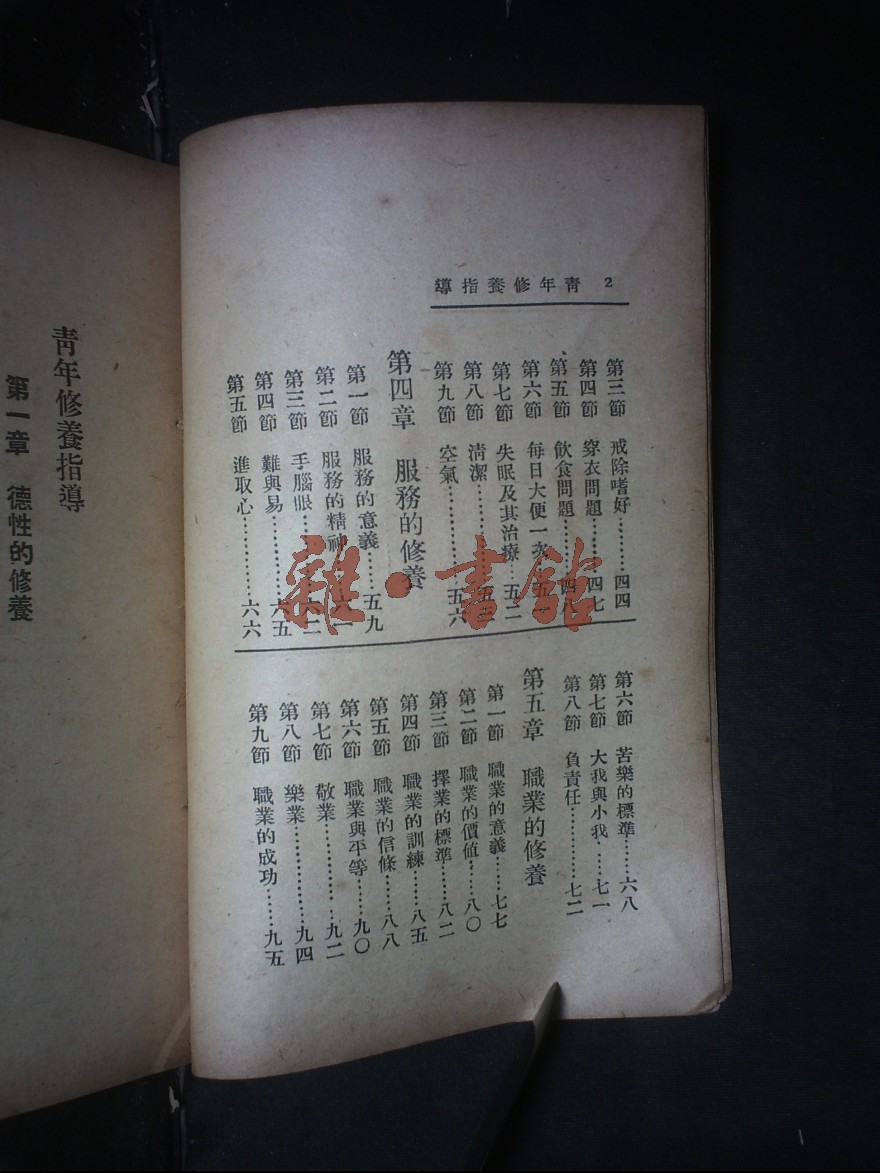 2 青年修養指導
第三節 戒除嗜好………四四
第四節 穿衣問題………四七
第五節 飲食問題………四八
第六節 每日大便一次…五一
第七節 失眠及其治療…五二
第八節 清潔……………五
第九節 空氣……………五六
第四章 服務的修養
第一節 服務的意義……五九
第二節 服務的精神……六一
第三節 手腦眼…………六二
第四節 難與易…………六五
第五節 進取心…………六六
第六節 苦樂的標準……六八
第七節 大我與小我……七一
第八節 負責任…………七二
第五章 職業的修養
第一節 職業的意義……七七
第二節 職業的價值……八〇
第三節 擇業的標準……八二
第四節 職業的訓練……八五
第五節 職業的信條……八八
第六節 職業與平等……九〇
第七節 敬業……………九二
第八節 樂業……………九四
第九節 職業的成功……九五
青年修養指導
第一章 德性的修養
雜·書館